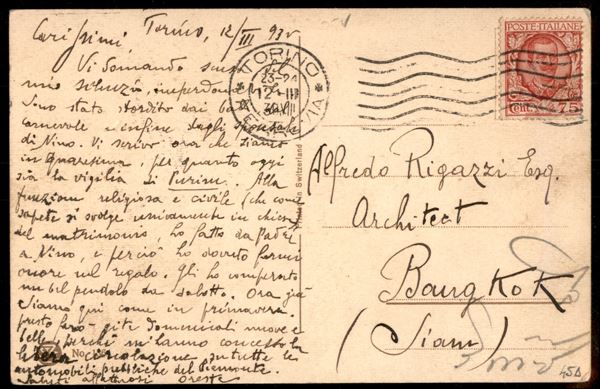 Torino, 12/III 930
Carissimi,
Vi domando scusa
mio silenzio,
Sono stato stordito dai
carnevale e infine dagli sponsali
di Nino. Vi scrivo ora che siamo
in Quaresima, per quanto oggi
sia la vigilia di Purim. Alla
funzione religiosa e civile (che come
sapete si svolge unicamente in chiesa
del matrimonio, ho fatto da Padre
a Nino, e perciò ho dovuto farmi
onore nel regalo. Gli ho comperato
un bel pendolo da salotto. Ora già
siamo qui come in primavera
presto farò gite domenicali nuove e
belle perchè mi hanno concesso la
libera circolazione in tutte le
automobili pubbliche del Piemonte.
Saluti affettuosi Oreste
No
in Switzerland
TORINO
23-24
12·III
POSTE·ITALIANE
CENT. 75
Alfredo Rigazzi Esq.
Architect
Bangkok
(Siam)